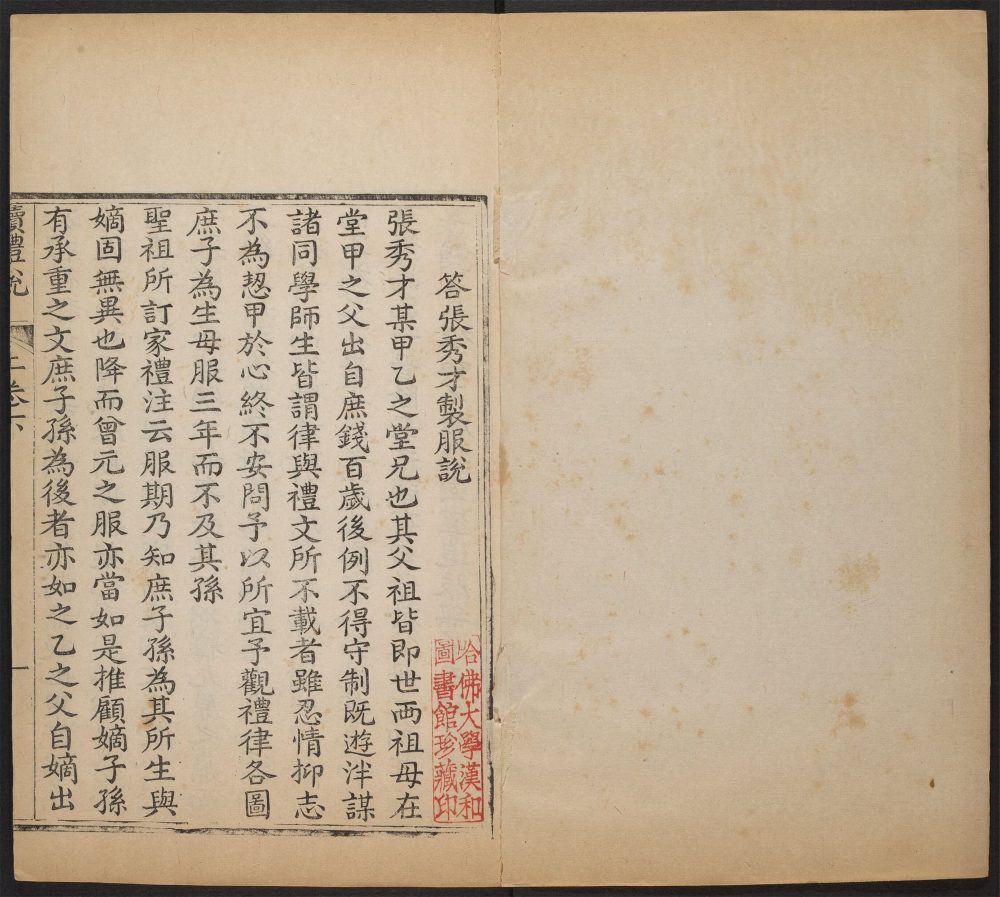 答張秀才製服說
張秀才某甲乙之堂兄也其父祖皆即世兩祖母在
堂甲之父出自庶錢百歲後例不得守制既遊泮謀
諸同學師生皆謂律與禮文所不載者雖忍情抑志
不為愆甲於心終不安問予以所宜予觀禮律各圖
庶子為生母服三年而不及其孫
聖祖所訂家禮注云服期乃知庶子孫為其所生與
嫡固無異也降而曾元之服亦當如是推顧嫡子孫
有承重之文庶子孫為後者亦如之乙之父自嫡出
讀禮說
上卷下
一
哈佛大學漢和
圖書館珍藏印